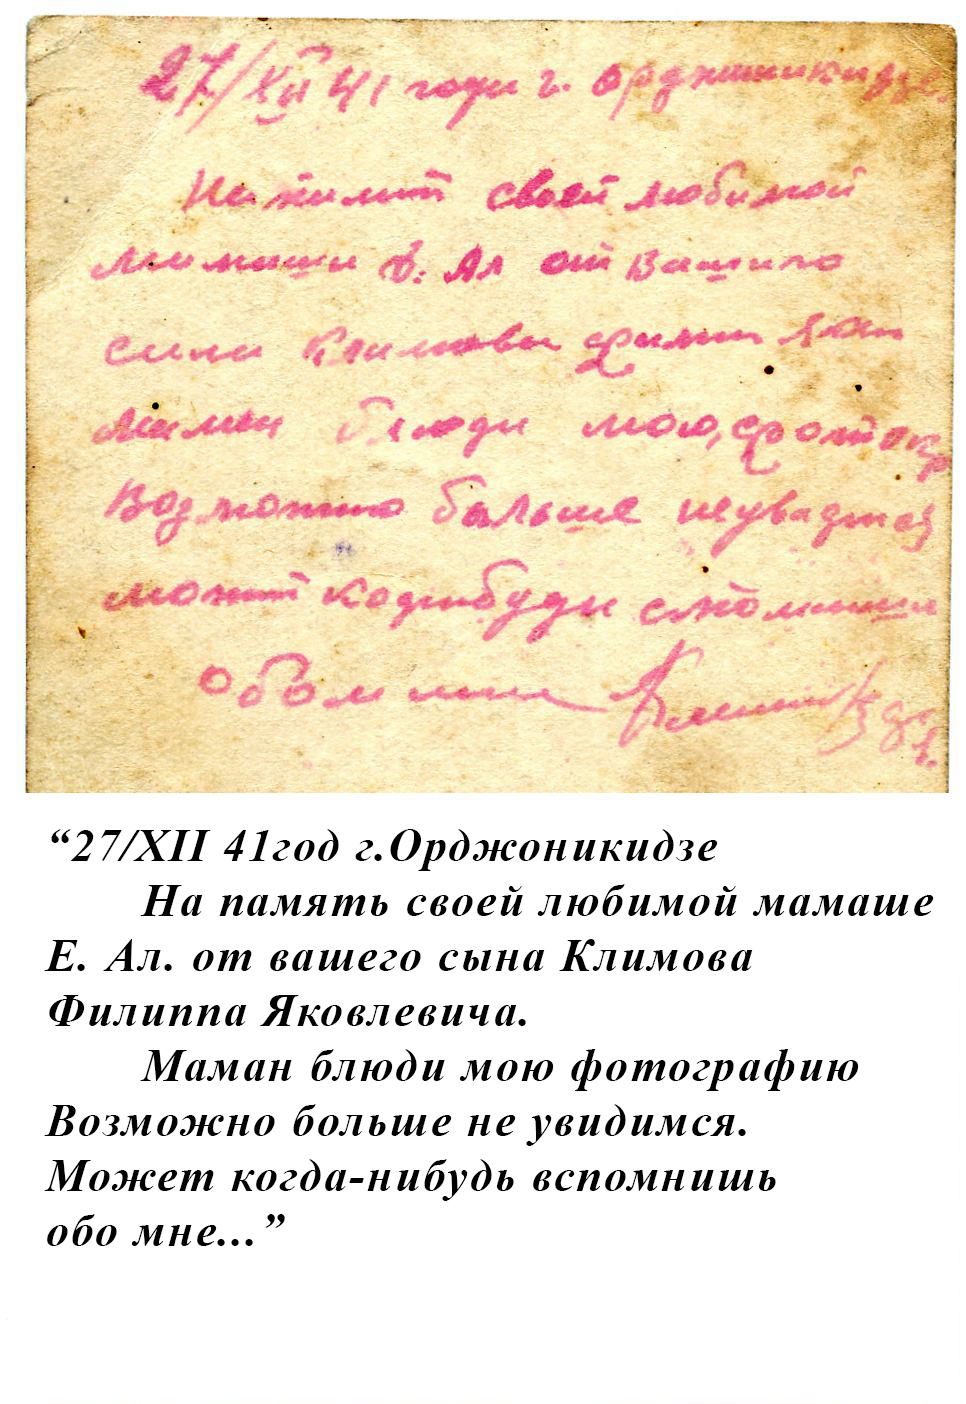 27/XII 41 годи г. орджиникидзе.
На пимит своей любимой
мимиши Е. Ал от вашиго
сина Климова Филип Яков
мимин блюди мою, фотогр
Возможно больше не увадимся
может кодибуди спомниш
обомине Климов
“27/XII 41год г.Орджоникидзе
На память своей любимой мамаше
Е. Ал. от вашего сына Климова
Филиппа Яковлевича.
Маман блюди мою фотографию
Возможно больше не увидимся.
Может когда-нибудь вспомнишь
обо мне...”